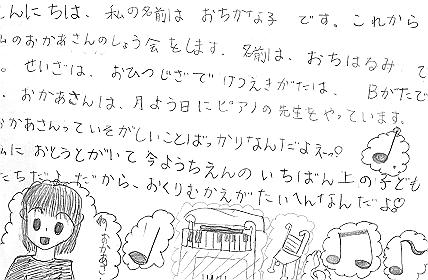 こんにちは、私の名前は おちかな子 です。これから
私のおかあさんのしょう会をします。名前は、おちはるみ で
。せいざは、おひつじざで けつえきがたは、 Bかたで
。おかあさんは、月よう日にピアノの先生をやっています。
おかあさんっていそがしいことばっかりなんだよえーっ♡
私に おとうとがいて 今ようちえんの いちばん上の子ども
たちだよ だから、おくりむかえがたいへんなんだよ♡
おかあさん